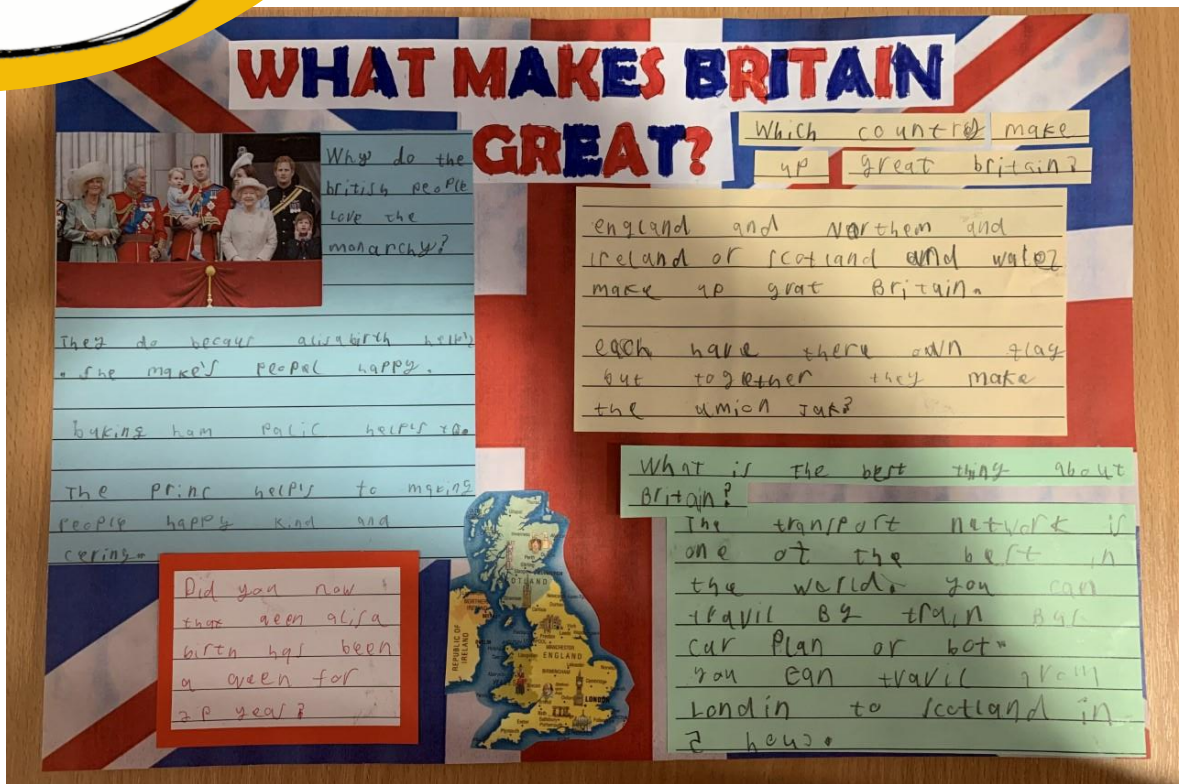 WHAT MAKES BRITAIN
GREAT?
Why do the
british people
Love the
monarchy?
They do becaus alisabirth help's
. she make's peopal happy.
buking ham palic help's to.
The princ help's to making
people happy kind and
cering.
Did you now
that qeen alisa
birth has been
a queen for
years?
Which countrys make
up great britain?
england and Northern and
ireland or scotland and walez
make up grat Britain.
each have there own flag
but together they make
the umion Jak?
What is the best thing about
Britain?
The transport network is
one of the best in
the world. you can
travil By train Bus
car Plan or bot.
you can travil from
Londin to scotland in
hous.
SCOTLAND
NORTHERN
IRELAND
REPUBLIC OF
IRELAND
MANCHESTER
ENGLAND
BIRMINGHAM
LONDON